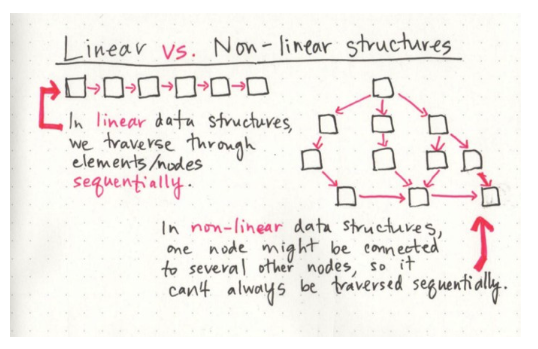 Linear vs. Non-linear structures
In linear data structures,
we traverse through
elements/nodes
sequentially.
In non-linear data structures,
one node might be connected
to several other nodes, so it
can't always be traversed sequentially.